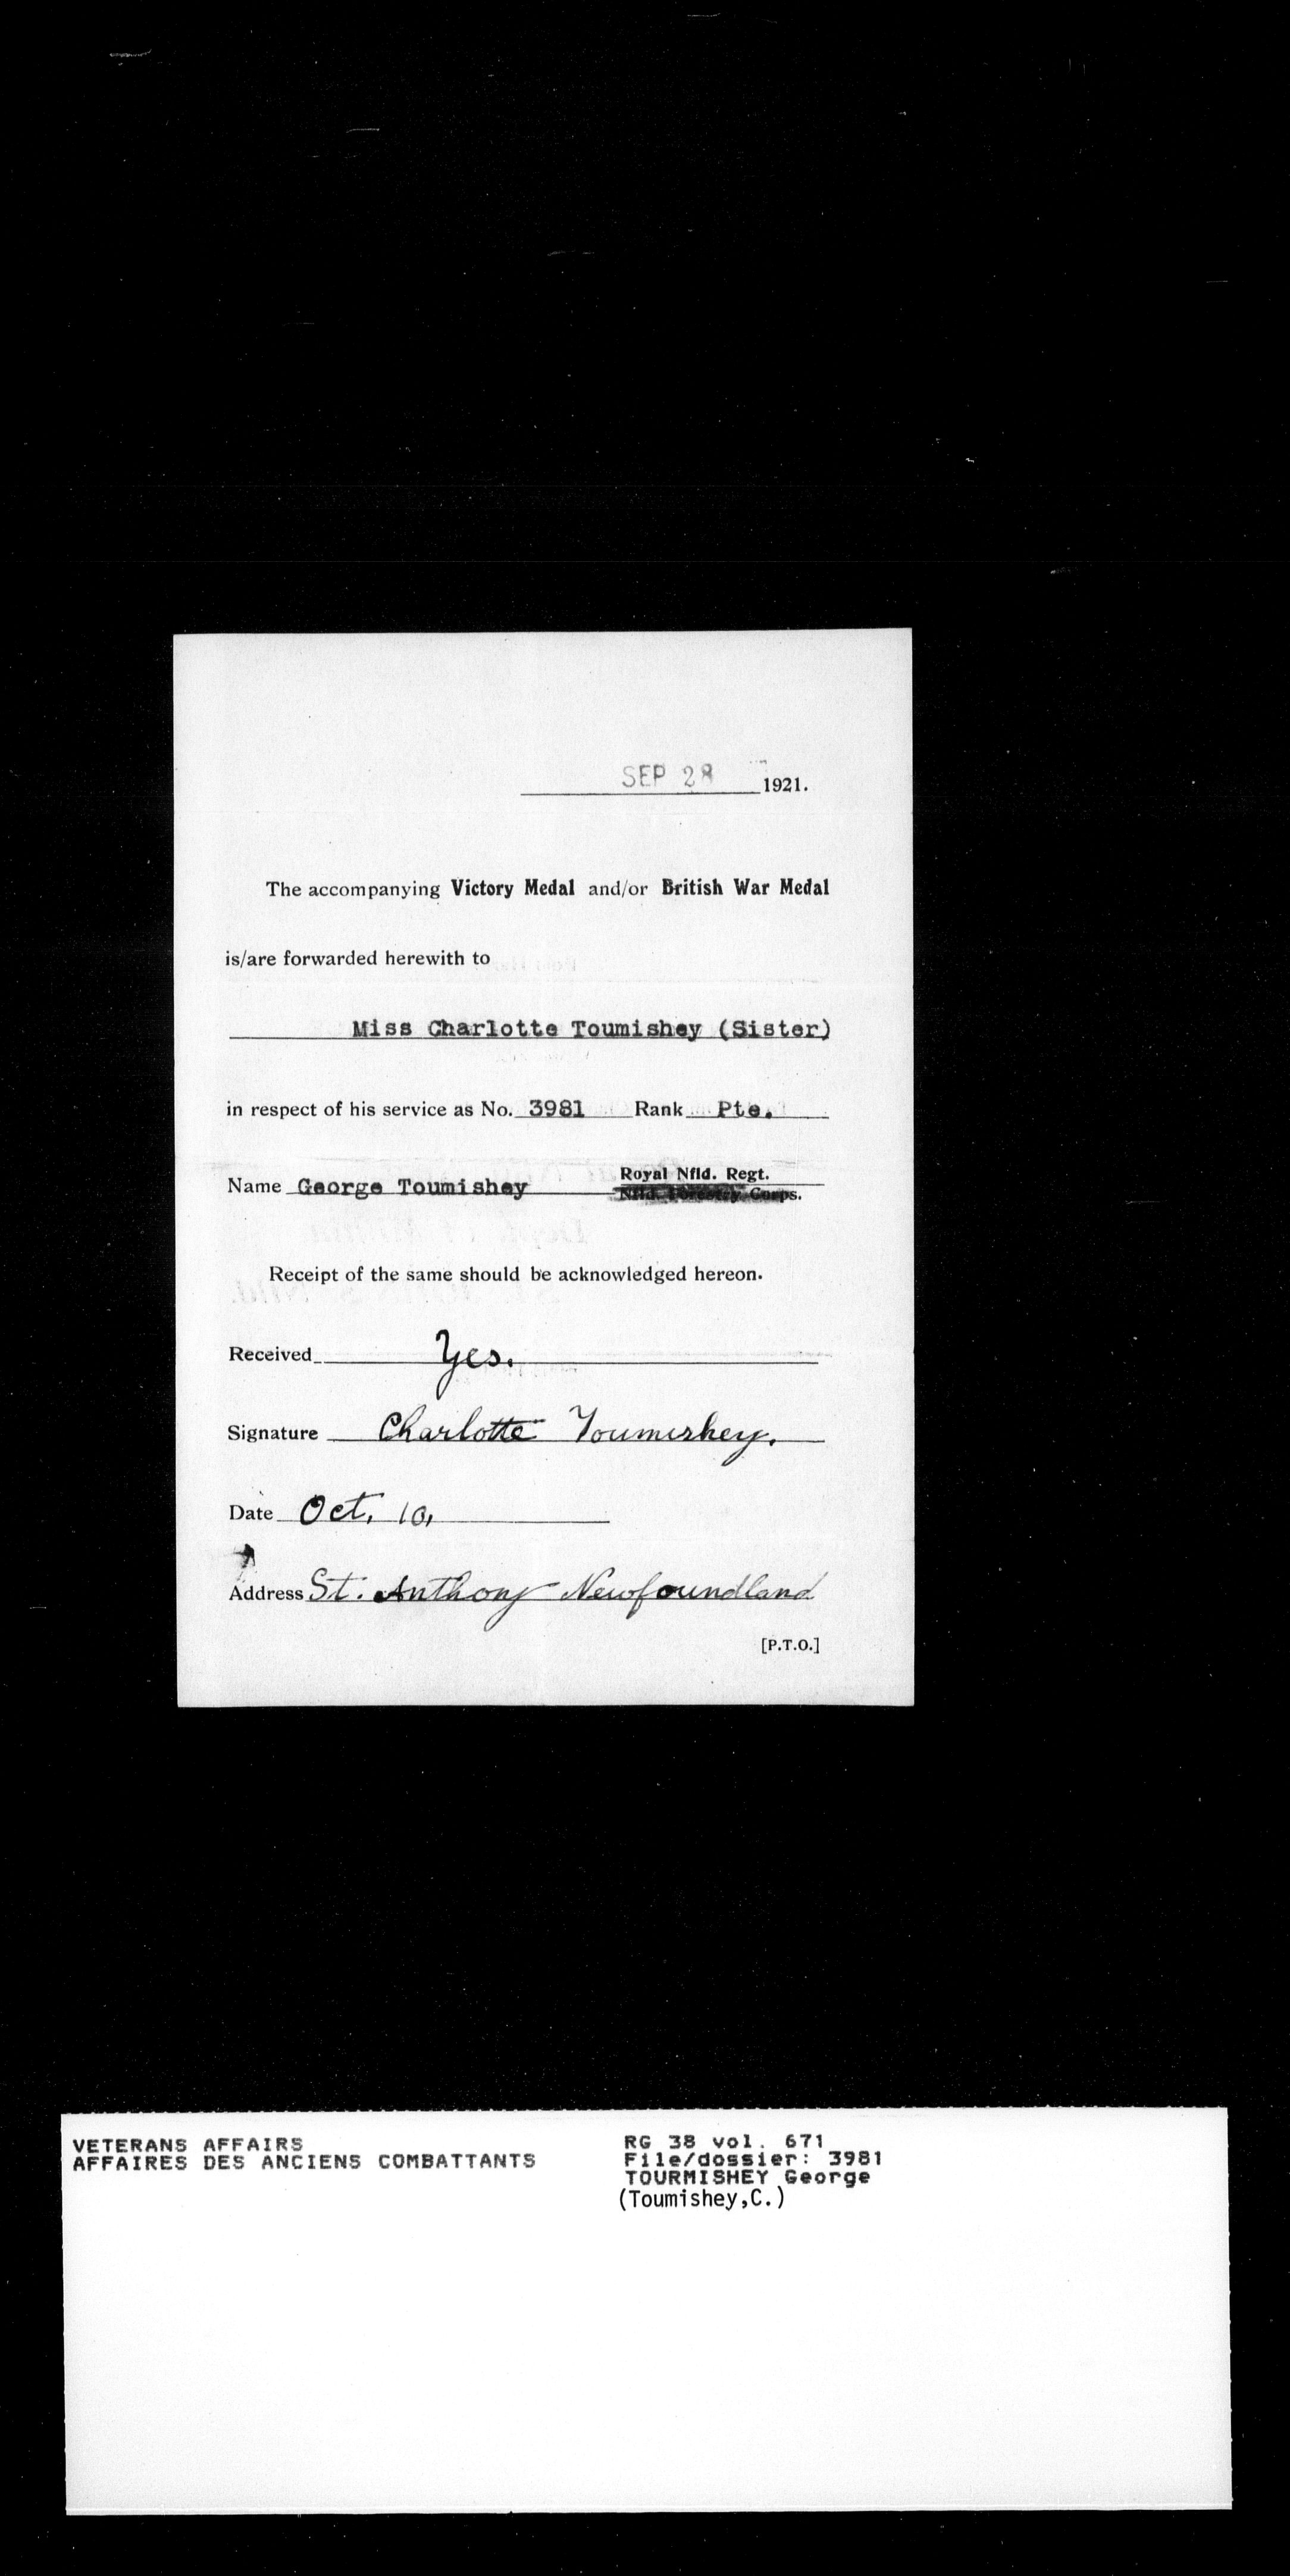 SEP 28 1921.
The accompanying Victory Medal and/or British War Medal
is/are forwarded herewith to
Miss Charlotte Toumishey (Sister)
in respect of his service as No. 3981 Rank Pte.
Name George Toumishey Royal Nfld. Regt.
Nfld. Forestry Corps.
Receipt of the same should be acknowledged hereon.
Received Yes.
Signature Charlotte Toumishey.
Date Oct. 10,
Address St. Anthony Newfoundland
[P.T.O.]
VETERANS AFFAIRS RG 38 vol. 671
AFFAIRES DES ANCIENS COMBATTANTS File/dossier: 3981
TOURMISHEY George
(Toumishey,C.)